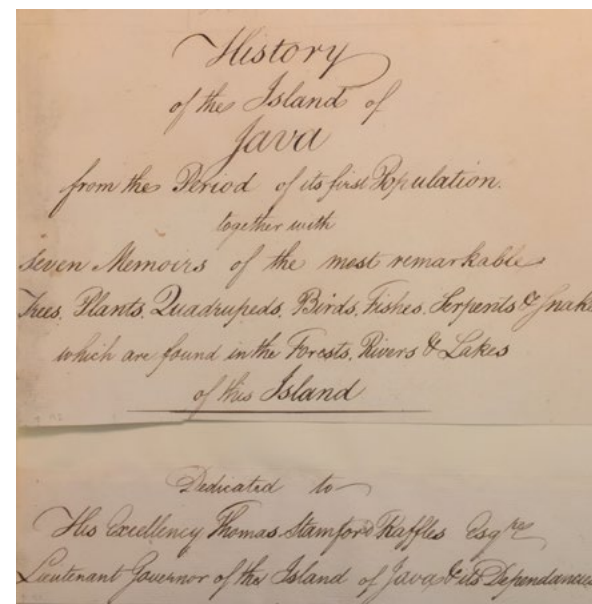 History
of the Island of
Java
from the Period of its first Population.
together with
seven Memoirs of the most remarkable
Trees, Plants, Quadrupeds, Birds, Fishes, Serpents & Snake
which are found in the Forests, Rivers & Lakes
of this Island
Dedicated to
His Excellency Thomas Stamford Raffles Esqre
Lieutenant Governor of the Island of Java & its Dependancies